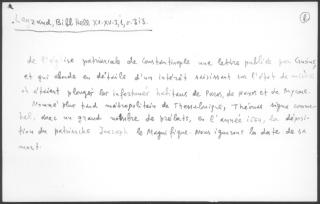 Legrand, Bibl. Hell. XV-XVI, 1, p. 313.
de l'église patriarcale de Constantinople une lettre publiée par Crusius,
et qui abonde en détails d'un intérêt saisissant sur l'état de misère
où étaient plongés les infortunés habitans de Paros, de Naxos et de Mycone.
Nommé plus tard métropolitain de Thessalonique, Théonas signe comme
tel, avec un grand nombre de prélats, en l'année 1564, la déposi-
tion du patriarche Joasaph le Magnifique. Nous ignorons la date de sa
mort.